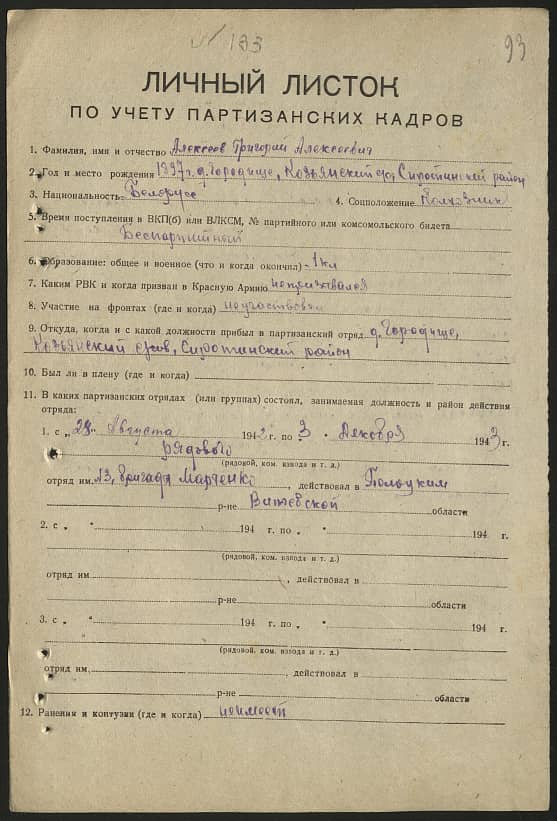 № 133
93
ЛИЧНЫЙ ЛИСТОК
ПО УЧЕТУ ПАРТИЗАНСКИХ КАДРОВ
1. Фамилия, имя и отчество Алексеев Григорий Алексеевич
2. Год и место рождения 1897г. д. Городище, Козьянский с/с, Сиротинский район
3. Национальность Белорусс 4. Соцположение Колхозник
5. Время поступления в ВКП(б) или ВЛКСМ, № партийного или комсомольского билета
Беспартийный
6. Образование: общее и военное (что и когда окончил) 1 кл
7. Каким РВК и когда призван в Красную Армию непризывался
8. Участие на фронтах (где и когда) неучаствовал
9. Откуда, когда и с какой должности прибыл в партизанский отряд д. Городище,
Козьянский с/сов, Сиротинский район
10. Был ли в плену (где и когда)
11. В каких партизанских отрядах (или группах) состоял, занимаемая должность и район действия
отряда:
1. с „ 28 " Августа 1942 г. по „ 3 " Декабря 1943 г.
рядового
(рядовой, ком. взвода и т. д.)
отряд им. 13, бригада Марченко, действовал в Полоцким
р-не Витебской области
2. с „ " 194 г. по „ " 194 г.
(рядовой, ком. взвода и т. д.)
отряд им , действовал в
р-не области
3. с „ " 194 г. по „ " 194 г.
(рядовой, ком. взвода и т. д.)
отряд им. , действовал в
р-не области
12. Ранения и контузии (где и когда) неимеет